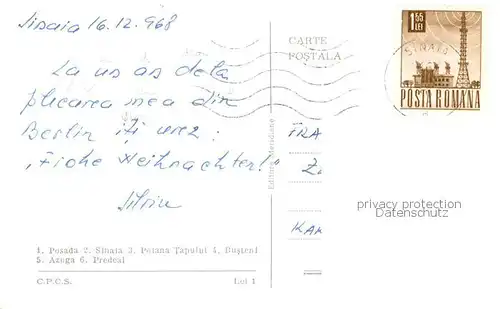 Sinaia 16.12.968
CARTE
POȘTALĂ
1,55
LEI
SINAIA
POSTA ROMANA
La un an după
plecarea mea din
Berlin îți urez:
"Frohe Weihnachten!"
Silviu
Editura Meridiane
TRA
Z
KAR
privacy protection
Datenschutz
1. Posada 2. Sinaia 3. Poiana Țapului 4. Bușteni
5. Azuga 6. Predeal
C.P.C.S.
Lei 1